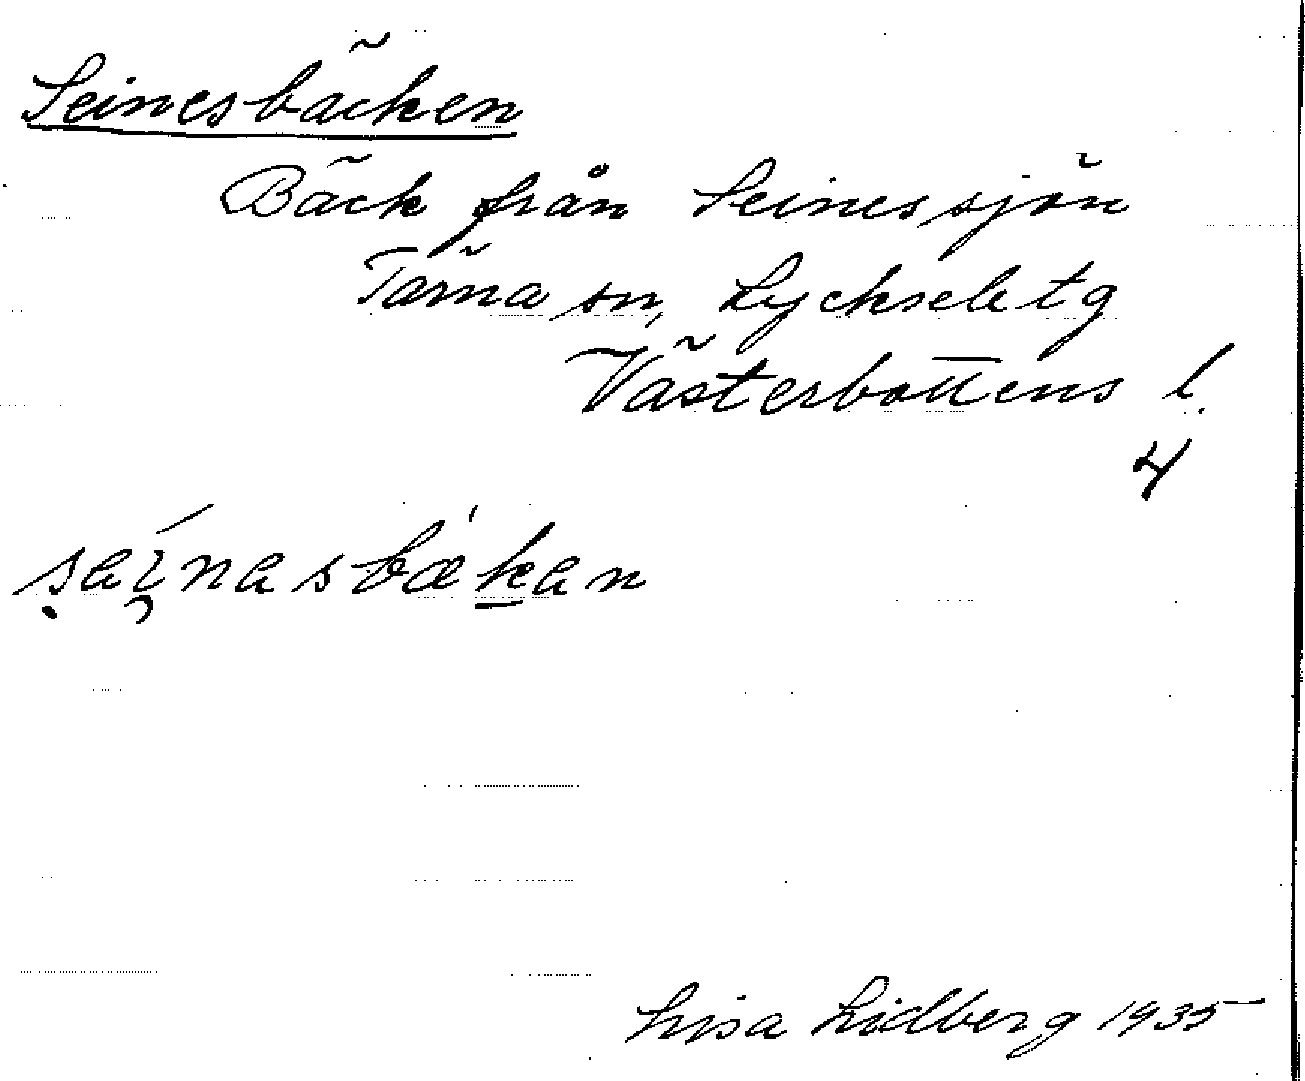 Seinesbäcken
Bäck från Seinessjön
Tärna sn, Lycksele tg
Västerbottens l.
4
sai̯nasbækan
Lisa Lidberg 1935